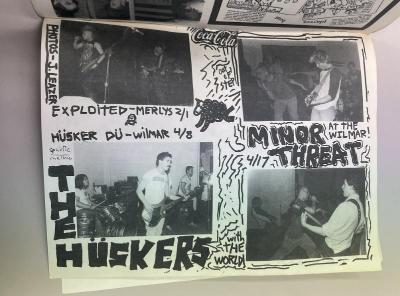 PHOTOS - J. LEXZER
Coca-Cola
EXPLOITED - MERLYS 2/1
&
HÜSKER DÜ - WILMAR 4/8
THE
HÜSKERS
with
THE
WORLD!
MINOR
THREAT
AT THE
WILMAR!
4/17